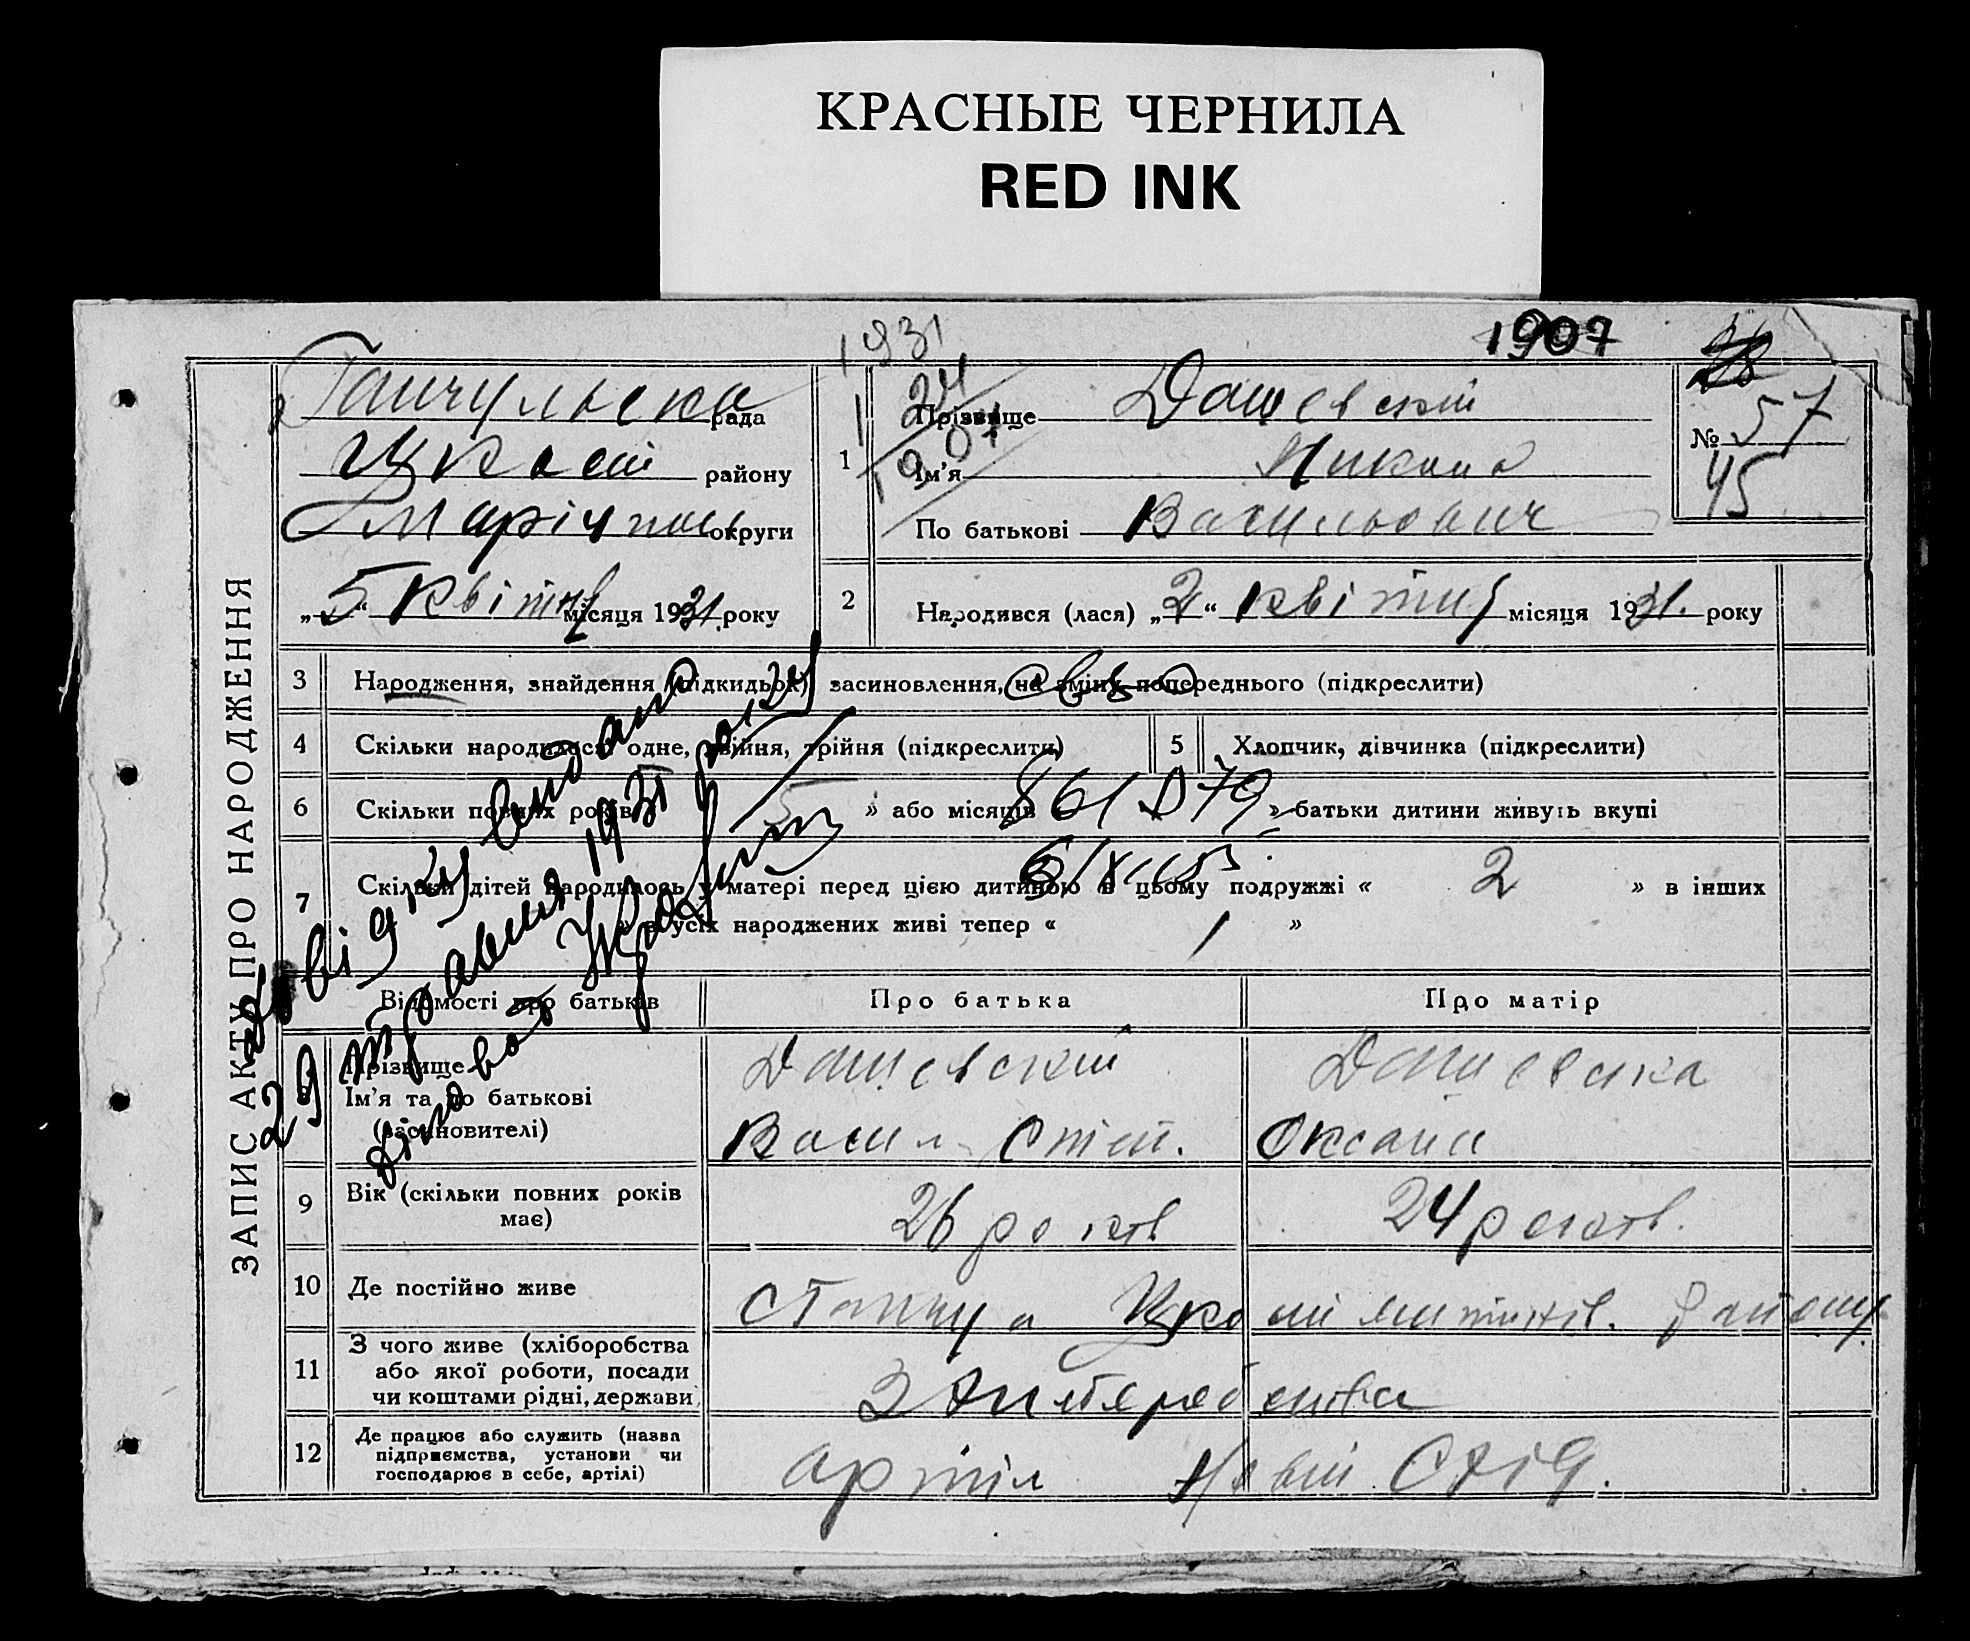 КРАСНЫЕ ЧЕРНИЛА
RED INK
1931
1907
ЗАПИС АКТУ ПРО НАРОДЖЕННЯ
рада
району
округи
„5“ квітня місяця 1931 року
1
Прізвище Дашевскій
Ім'я Микола
По батькові Васильович
№ 57
45
2
Народився (лася) „2“ квітня місяця 1931. року
3
Народження, знайдення (підкидьок) засиновлення, на зміну попереднього (підкреслити)
4
Скільки народилося: одне, двійня, трійня (підкреслити)
5
Хлопчик, дівчинка (підкреслити)
6
Скільки повних років 5 » або місяців » батьки дитини живуть вкупі
7
Скільки дітей народилось у матері перед цією дитиною в цьому подружжі « 2 » в інших
» в усіх народжених живі тепер « 1 »
Довідку видано
29 травня 1931 року
Відомості про батьків
Про батька
Про матір
8
Прізвище
Ім'я та по батькові
(засиновителі)
Дашевский
Васил Степ.
Дашевска
Оксана
9
Вік (скільки повних років має)
26 років
24 років.
10
Де постійно живе
району
11
З чого живе (хліборобства
або якої роботи, посади
чи коштами рідні, держави)
З
12
Де працює або служить (назва
підприємства, установи чи
господарює в себе, артілі)
артіл Новий Схід.